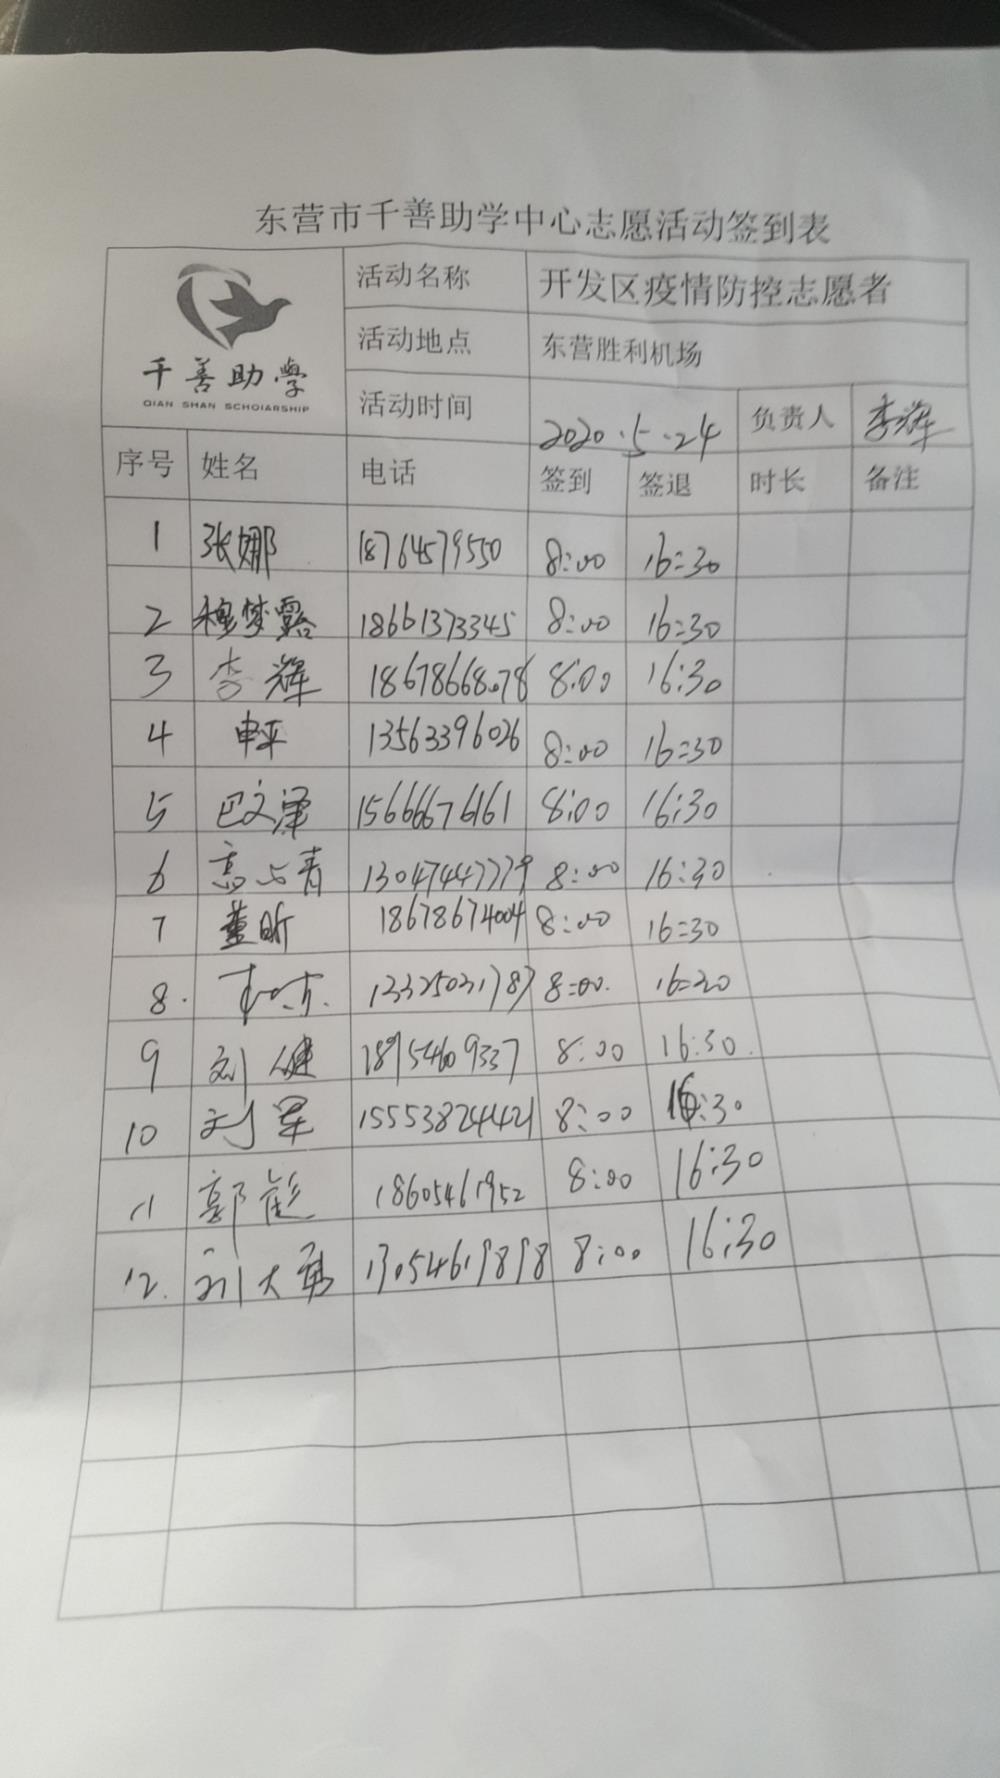 东营市千善助学中心志愿活动签到表
千善助学
QIAN SHAN SCHOIARSHIP
活动名称 开发区疫情防控志愿者
活动地点 东营胜利机场
活动时间 2020.5.24 负责人 李辉
序号 姓名 电话 签到 签退 时长 备注
1 张娜 18764579550 8:00 16:30
2 穆梦露 18661373345 8:00 16:30
3 李辉 18678668078 8:00 16:30
4 申平 13563396026 8:00 16:30
5 巴文泽 15666676161 8:00 16:30
6 高占青 13047447779 8:00 16:30
7 董昕 18678674004 8:00 16:30
8. 13325031787 8:00. 16:30
9 刘健 18954609337 8:00 16:30.
10 刘军 15553824421 8:00 16:30
11 郭彪 18605461952 8:00 16:30
12. 刘大勇 13054619898 8:00 16:30